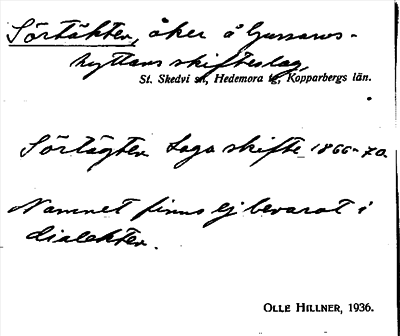 Sörtäkten, åker å Gussarvs-
hyttans skifteslag,
St. Skedvi sn, Hedemora tg, Kopparbergs län.
Sörtägten Laga skifte 1866-70.
Namnet finns ej bevarat i
dialekten.
OLLE HILLNER, 1936.